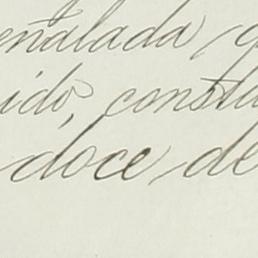 eñalada
ido, constu
doce de